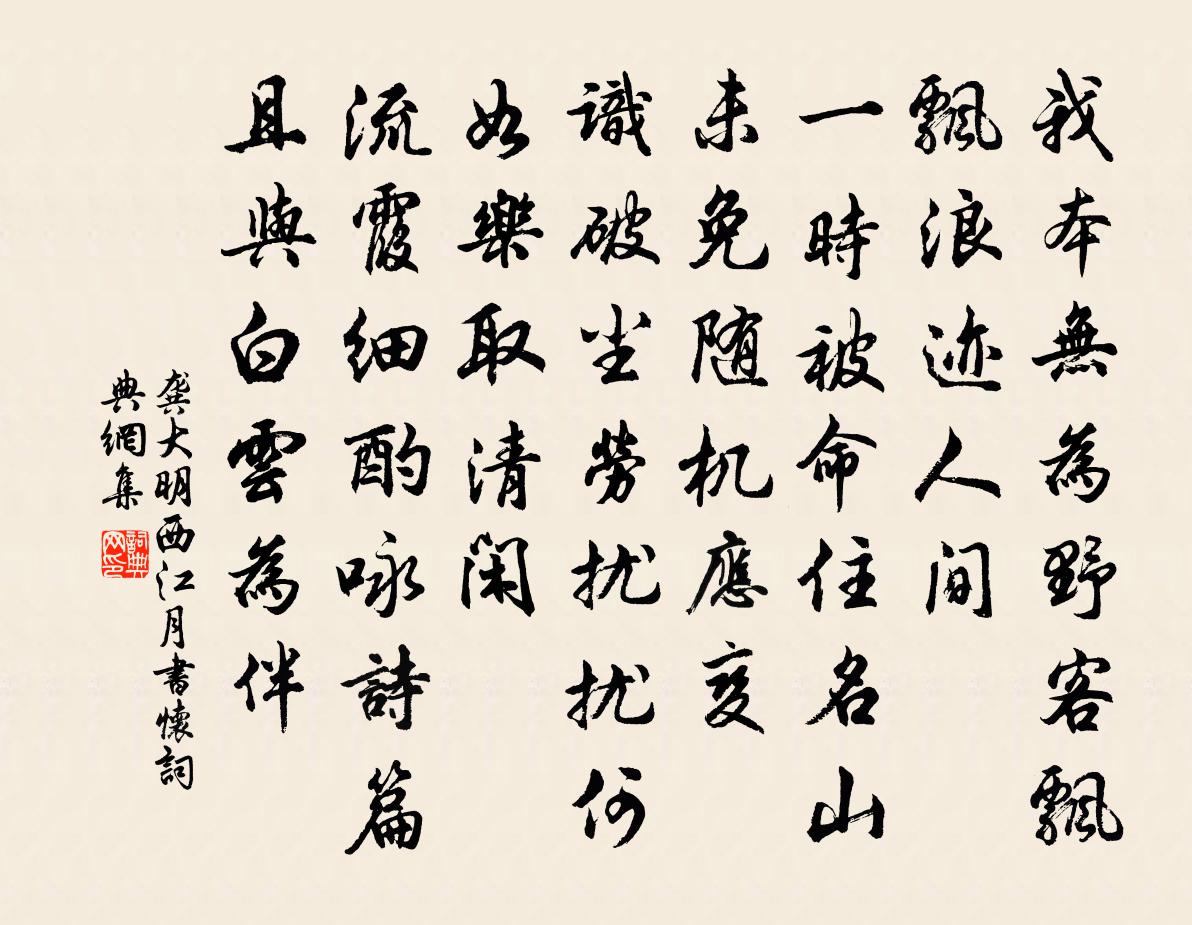 我本無為野客飄
飄浪迹人间
一時被命住名山
未免随机應变
識破尘勞扰扰何
如樂取清闲
流霞细酌咏詩篇
且與白雲為伴
龚大明西江月書懷詞
典網集
詞典
网印